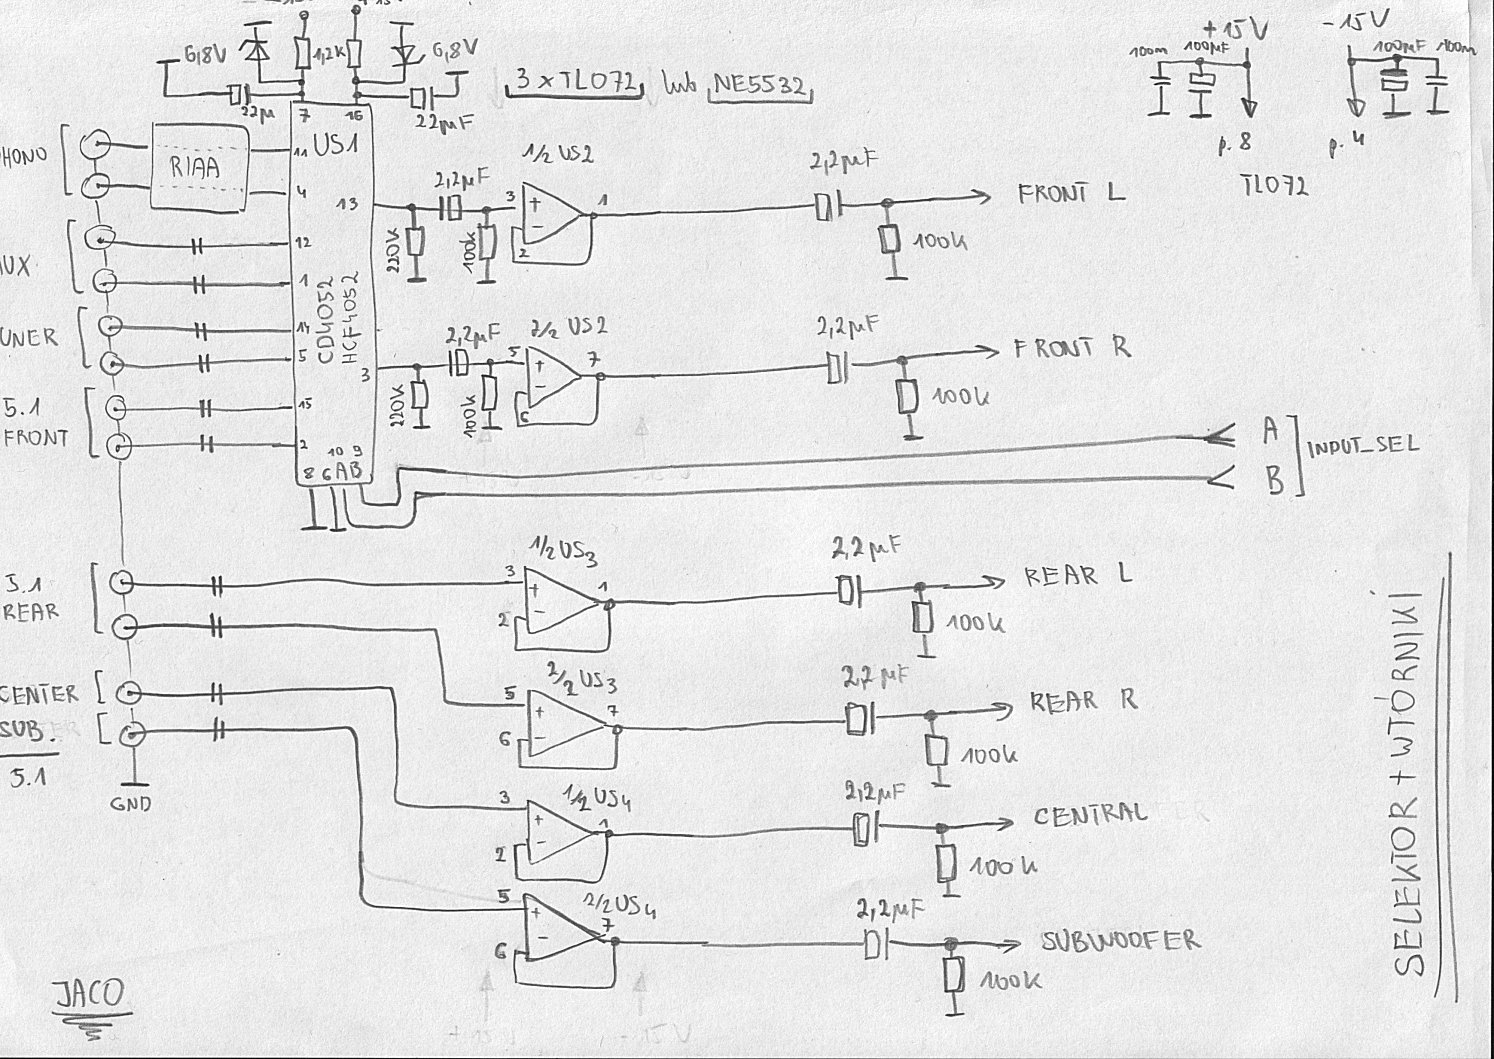 6,8V
1,2K
6,8V
22µ
22µF
7
16
3 x TL072 lub NE5532
+15V
-15V
100m
100µF
100µF
100m
p. 8
p. 4
TL072
HONO
RIAA
11
US1
4
13
2,2µF
3
1/2 US2
1
2
2,2µF
FRONT L
220K
100k
100k
UX
12
1
CD4052
HCF4052
UNER
14
5
3
2,2µF
5
2/2 US2
7
6
2,2µF
FRONT R
220K
100k
100k
5.1
FRONT
15
2
10 9
8 6 A B
A
B
INPUT_SEL
5.1
REAR
3
1/2 US3
1
2
2,2µF
REAR L
100k
5
2/2 US3
7
6
2,2µF
REAR R
100k
CENTER
SUB.
5.1
GND
3
1/2 US4
1
2
2,2µF
CENTRAL
100k
5
2/2 US4
7
6
2,2µF
SUBWOOFER
100k
JACO
SELEKTOR + WTÓRNIKI